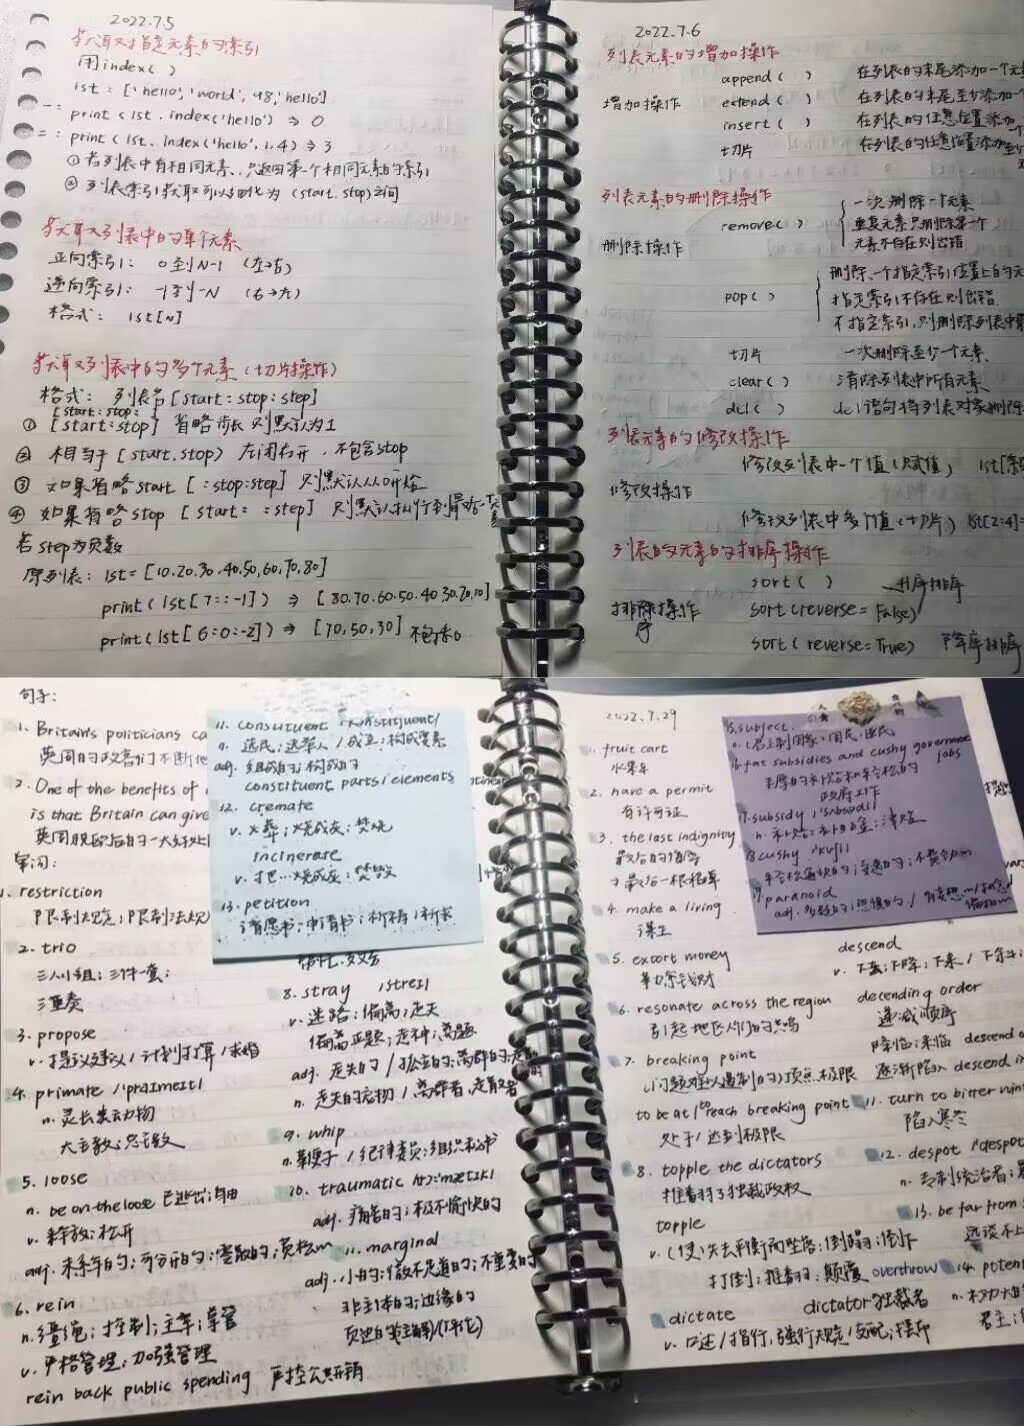 2022.7.5
获取指定元素的索引
用index( )
lst = ['hello','world', 98,'hello']
一: print(lst.index('hello') ⇒ 0
二: print(lst.index('hello',1,4) ⇒ 3
① 若列表中有相同元素,只返回第一个相同元素的索引
② 列表索引获取可以细化为 (start,stop)之间
获取列表中的单个元素
正向索引: 0到N-1 (左→右)
逆向索引: -1到-N (右→左)
格式: lst[N]
获取列表中的多个元素(切片操作)
格式: 列表名[start:stop:step]
[start:stop:]
① [start:stop] 省略步长则默认为1
② 相当于 [start,stop) 左闭右开,不包含stop
③ 如果省略start [:stop:step] 则默认从0开始
④ 如果省略stop [start: :step] 则默认执行到最后一个元素
若step为负数
原列表: lst=[10,20,30,40,50,60,70,80]
print(lst[7::-1]) ⇒ [80,70,60,50,40,30,20,10]
print(lst[6:0:-2]) ⇒ [70,50,30] 不包括0
2022.7.6
列表元素的增加操作
append( ) 在列表的末尾添加一个元
增加操作 extend( ) 在列表的末尾至少添加一个
insert( ) 在列表的任意位置添加一个
切片 在列表的任意位置添加至少
列表元素的删除操作
一次删除一个元素
remove( ) 重复元素只删除第一个
删除操作 元素不存在则出错
删除一个指定索引位置上的元
pop( ) 指定索引不存在则出错
不指定索引,则删除列表中最
切片 一次删除至少一个元素
clear( ) 清除列表中所有元素
del( ) del语句将列表对象删除
列表元素的修改操作
修改列表中一个值(赋值) lst[索
修改操作
修改列表中多个值(切片) lst[2:4]=
列表的元素的排序操作
sort( ) 升序排序
排序操作 sort(reverse=False)
sort(reverse=True) 降序排序
句子:
1. Britain's politicians ca
英国的政客们不断
2. One of the benefits of
is that Britain can give
英国脱欧后的一大好处
单词:
1. restriction
限制规定;限制法规
2. trio
三人小组;三件一套;
三重奏
3. propose
v. 提议建议/计划打算/求婚
4. primate /ˈpraɪmeɪt/
n. 灵长类动物
大主教;总主教
5. loose
n. be on the loose 已逃出;自由
v. 释放;松开
adj. 未系牢的;可分开的;零散的;
6. rein
n. 缰绳;控制;主宰;掌管
v. 严格管理;加强管理
rein back public spending 严控公共开销
11. constituent /kənˈstɪtjuənt/
n. 选民;选举人/成立;构成要素
adj. 组成的;构成的
constituent parts/elements
12. cremate
v. 火葬;烧成灰;焚烧
incinerate
v. 把…烧成灰;焚毁
13. petition
请愿书;申请书;祈祷;祈求
8. stray /streɪ/
v. 迷路;偏离;走失
偏离正题;走神;离题
adj. 走失的/孤立的;离群的;
n. 走失的宠物/离群者,走散者
9. whip
n. 鞭子/纪律委员;组织秘书
10. traumatic /trɔːˈmætɪk/
adj. 痛苦的;极不愉快的
11. marginal
adj. 小的;微不足道的;不重要的
非主体的;边缘的
页边的
2022.7.29
1. fruit cart
水果车
2. have a permit
有许可证
3. the last indignity
最后的侮辱
最后一根稻草
4. make a living
谋生
5. extort money
勒索钱财
6. resonate across the region
引起地区人们的共鸣
7. breaking point
(问题难以遏制的)顶点,极限
to be at/to reach breaking point
处于/达到极限
8. topple the dictators
推翻了独裁政权
topple
v. (使)失去平衡而坠落;倒塌;倒下
打倒;推翻;颠覆 overthrow
dictate dictator独裁者
v. 口述/指行,强行规定/支配;摆布
15. subject
n. (君主制国家)国民,臣民
16. fat subsidies and cushy government jobs
丰厚的补贴和轻松的
政府工作
17. subsidy /ˈsʌbsədi/
n. 补贴;补助金;津贴
18. cushy /ˈkʊʃi/
轻松愉快的;安逸的;不费劲的
19. paranoid
adj. 多疑的;恐惧的/
descend
v. 下去;下降;下来/下车
decending order
递减顺序
降临;来临 descend o
逐渐陷入 descend in
11. turn to bitter wint
陷入寒冬
12. despot /ˈdespɒt
n. 专制统治者;
13. be far from
远谈不上
14. poten
n. 权力大的
君主;